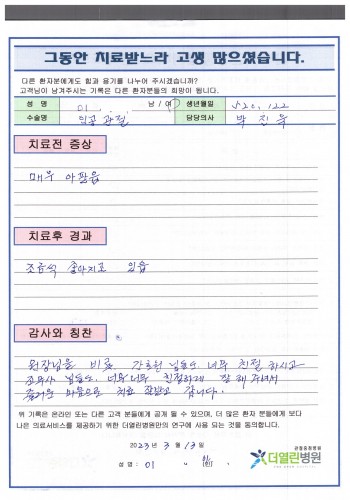 그동안 치료받느라 고생 많으셨습니다.
다른 환자분에게도 힘과 용기를 나누어 주시겠습니까?
고객님이 남겨주시는 기록은 다른 환자분들의 희망이 됩니다.
성 명 이 남 / 여 생년월일
수술명 인공관절 담당의사 박진욱
치료전 증상
매우 아팠음
치료후 경과
조금씩 좋아지고 있음
감사와 칭찬
원장님을 비롯 간호원님들도 너무 친절하시고
너무너무 친절하게 잘 해 주셔서
즐거운 마음으로 치료 잘 받고 갑니다.
위 기록은 온라인 또는 다른 고객 분들에게 공개 될 수 있으며, 더 많은 환자 분들에게 보다
나은 의료서비스를 제공하기 위한 더열린병원만의 연구에 사용 되는 것을 동의합니다.
2023년 3월 13일
성명 : 이
관절중점병원
더열린병원